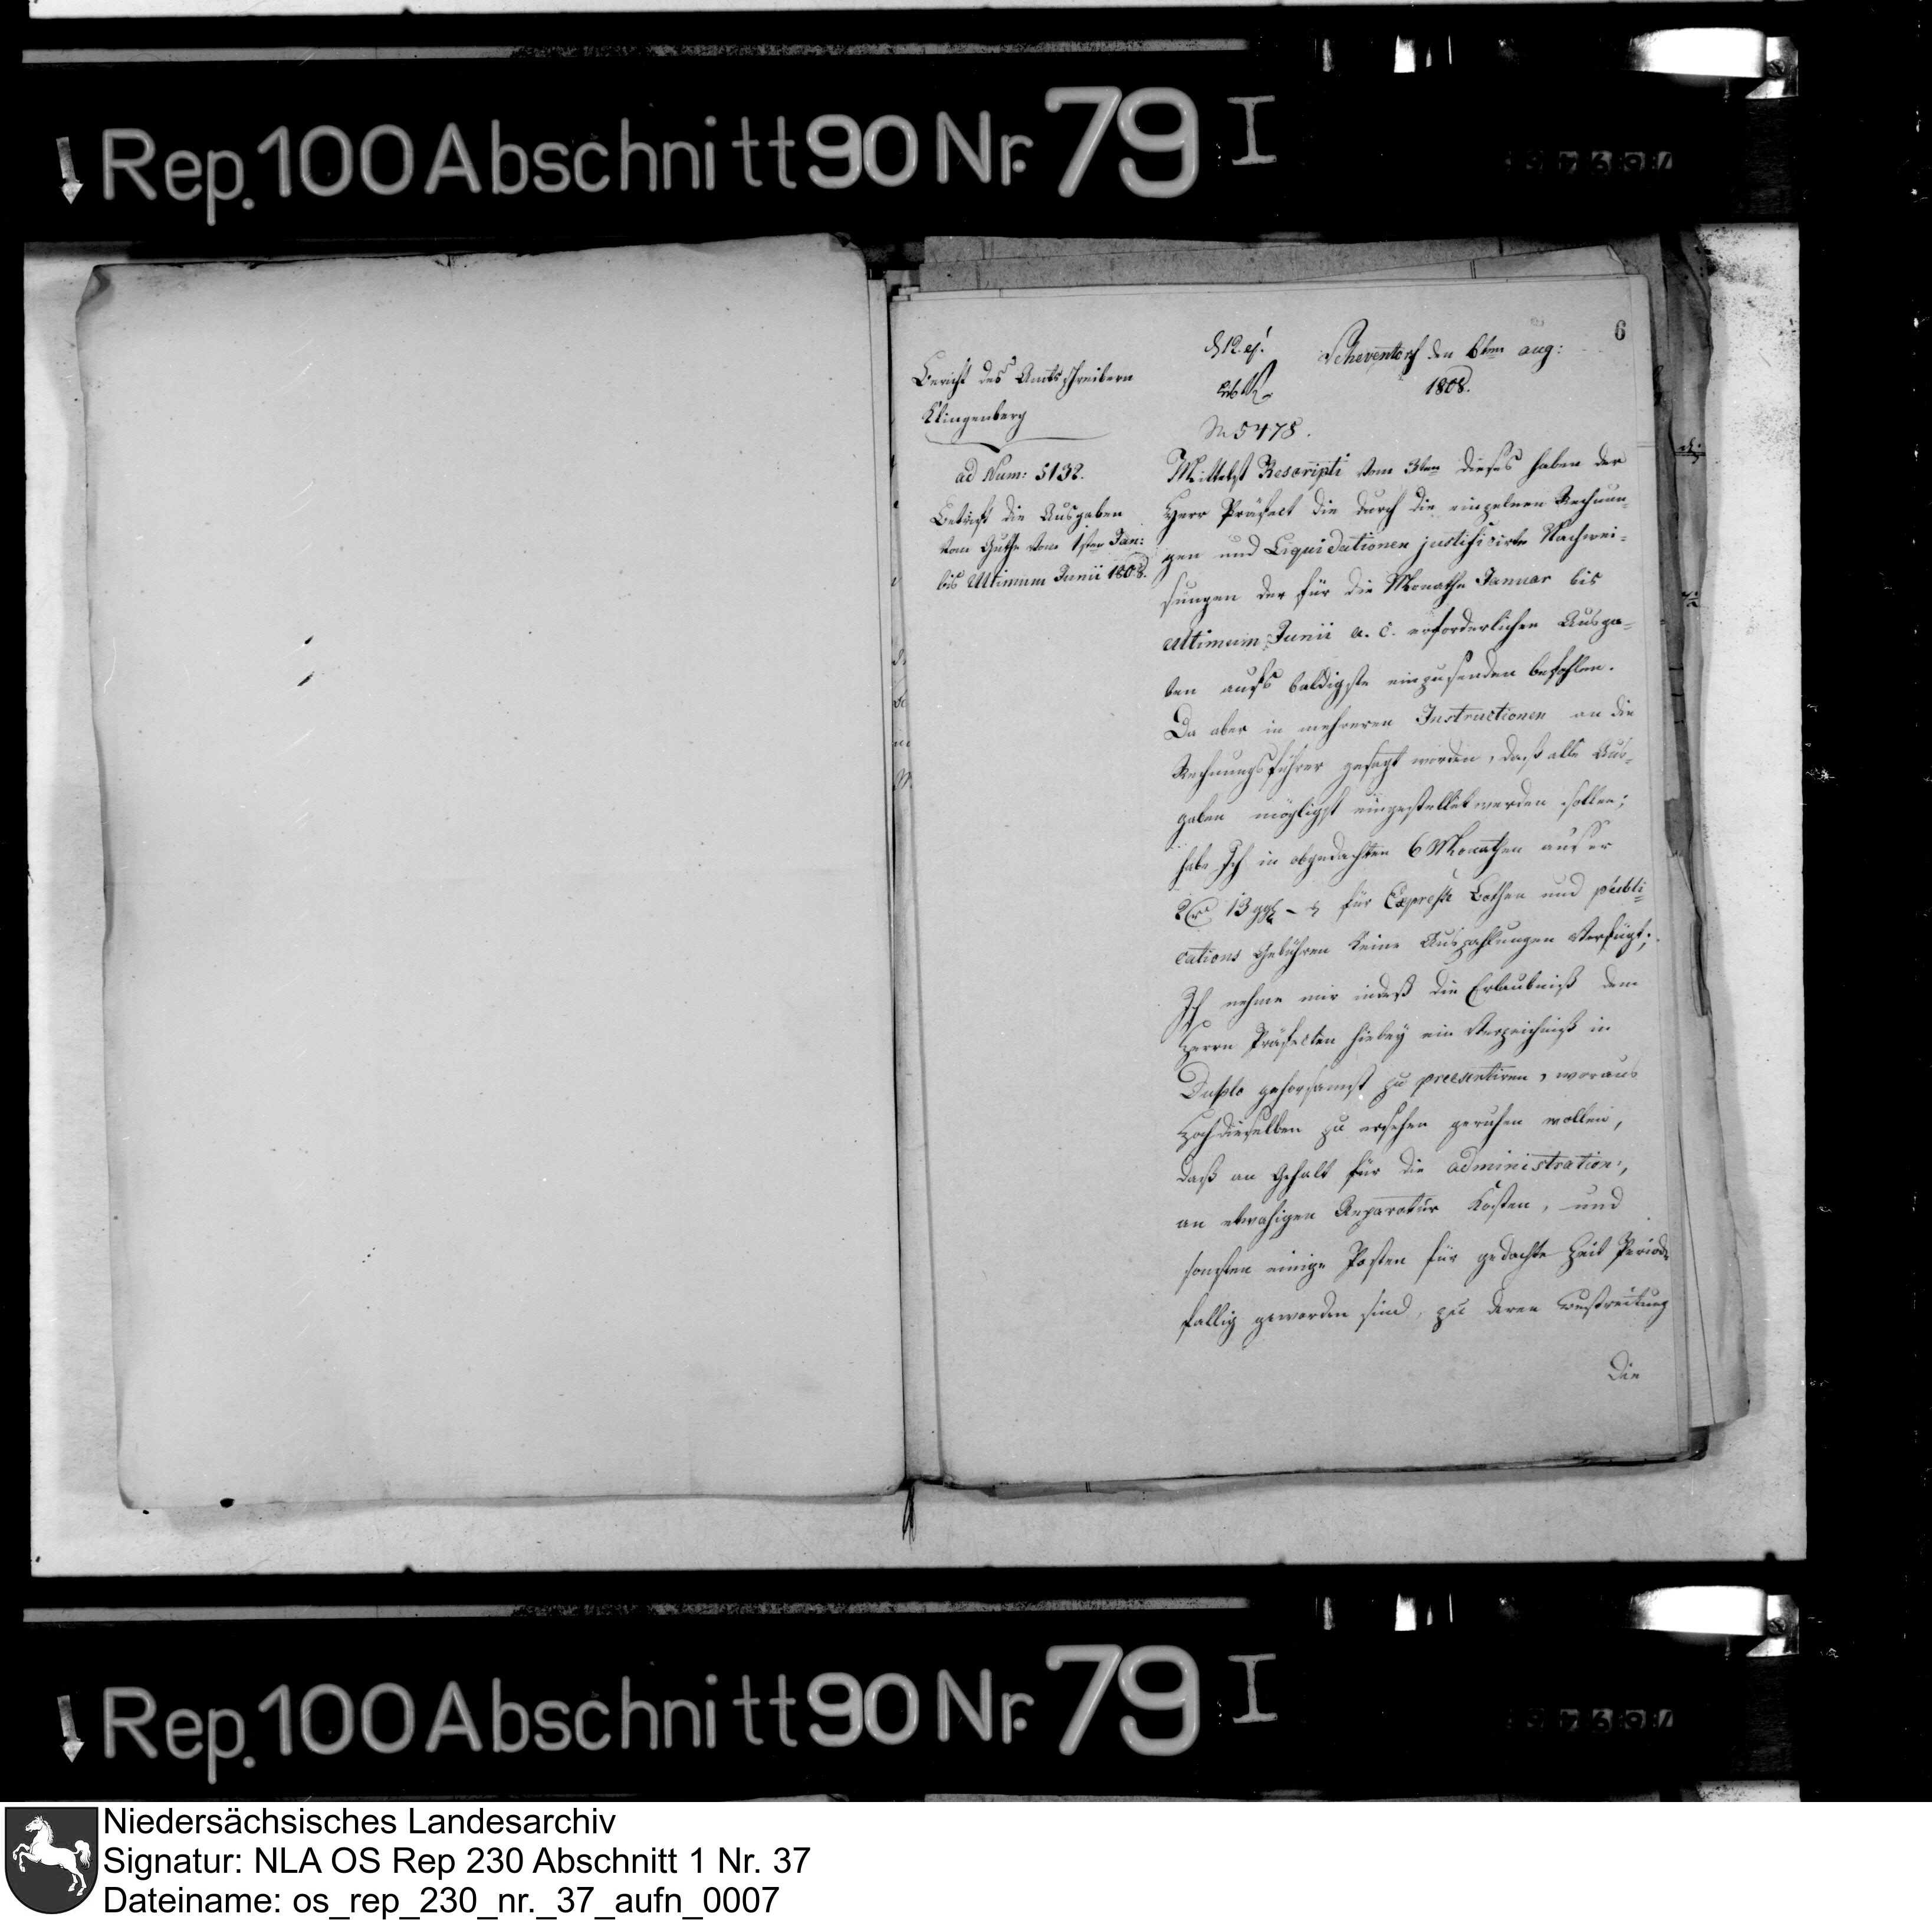 Rep. 100 Abschnitt 90 Nr. 79 I
6
Scheventorf den 6ten aug:
1808.
Bericht des Amtsschreibern
Klingenberg
N 5478.
ad Num: 5132.
Betrift die Ausgaben
vom Guthe vom 1sten Jan:
bis Ultimum Junii 1808.
Mittelst Rescripti vom 3ten dieses haben der
Herr Präfect die durch die einzelnen Rechnun-
gen und Liquidationen justificirte Nachwei-
sungen der für die Monathe Januar bis
ultimum Junii a. c. erforderlichen Ausga-
ben aufs baldigste einzusenden befohlen.
Da aber in mehreren Instructionen an die
Rechnungsführer gesagt worden, daß alle Aus-
gaben mögligst eingestellet werden sollen;
habe Ich in obgedachten 6 Monathen ausser
13 ggl für Expresse Bothen und publi-
cations Gebühren keine Auszahlungen verfügt;
Ich nehme mir indeß die Erlaubniß dem
Herrn Präfecten hiebey ein Verzeichniß in
Duplo gehorsamst zu praesentiren, woraus
Hochdieselben zu ersehen geruhen wollen,
daß an Gehalt für die administration,
an etwahigen Reparatur Kosten, und
sonsten einige Posten für gedachte Zeit Periode
fällig geworden sind, zu deren Bestreitung
Die
Rep. 100 Abschnitt 90 Nr. 79 I
Niedersächsisches Landesarchiv
Signatur: NLA OS Rep 230 Abschnitt 1 Nr. 37
Dateiname: os_rep_230_nr._37_aufn_0007